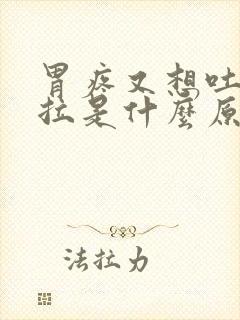 胃疼又想吐
拉是什麼原
法拉力